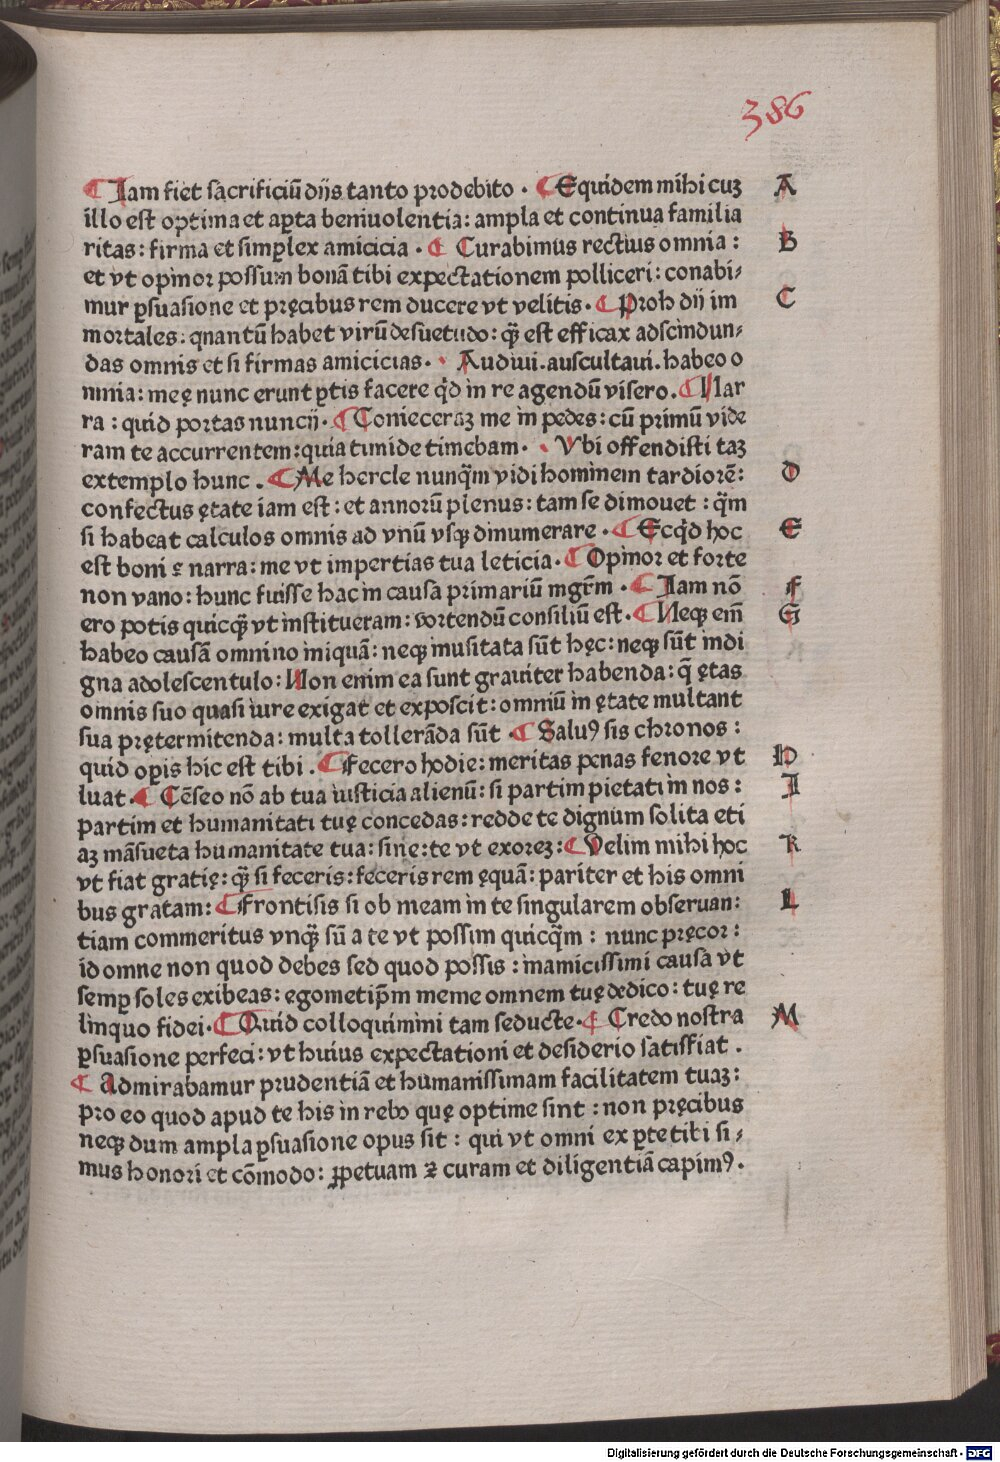 386
¶ Iam fiet sacrificiū dijs tanto prodebito . ¶ Equidem mihi cuꝫ A
illo est optima et aꝑta beniuolentia: ampla et continua familia
ritas: firma et simplex amicicia . ¶ Curabimus rectius omnia : B
et vt opinor possum bonā tibi expectationem polliceri: conabi⸗
mur ꝑsuasione et pręcibus rem ducere vt velitis. ¶ Proh dij im C
mortales: qnantū habet virū desuetudo: q̄ȝ est efficax adscindun⸗
das omnis et si firmas amicicias. Audiui. auscultaui. habeo o
mnia: meę nunc erunt ꝑtis facere q̇d in re agendū visero. ¶ Nar
ra : quid portas nuncij. ¶ Conieceraꝫ me in pedes: cū primū vide
ram te accurrentem: quia timide timebam. Vbi offendisti taꝫ
extemplo hunc . ¶ Me hercle nunq̄m vidi hominem tardiorē: D
confectus ętate iam est: et annorū plenus: tam se dimouet : q̄m
si habeat calculos omnis ad vnū vsqꝫ dinumerare . ¶ Ecq̇d hoc E
est boni ⁊ narra: me vt impertias tua leticia. ¶ Opinor et forte
non vano: hunc fuisse hac in causa primariū mgr̄m . ¶ Iam nō F
ero potis quicq̄ȝ vt institueram: vortendū consiliū est. ¶ Neqꝫ em̄ G
habeo causā omnino iniquā: neqꝫ inusitata sūt hęc: neqꝫ sūt indi
gna adolescentulo: Non enim ea sunt grauiter habenda: q̄ ętas
omnis suo quasi iure exigat et exposcit: omniū in ętate multant
sua pręter mitenda: multa tollerāda sūt . ¶ Saluꝰ sis chronos :
quid opis hic est tibi . ¶ Fecero hodie: meritas penas fenore vt H
luat. ¶ Cēseo nō ab tua iusticia alienū: si partim pietati in nos : I
partim et humanitati tuę concedas: redde te dignum solita eti
aꝫ māsueta humanitate tua: sine: te vt exoreꝫ: ¶ Velim mihi hoc K
vt fiat gratię: q̄ȝ si feceris: feceris rem ęquā: pariter et his omni
bus gratam: ¶ Frontisis si ob meam in te singularem obseruan: L
tiam commeritus vnq̄ȝ sū a te vt possim quicq̄m : nunc pręcor :
id omne non quod debes sed quod possis : inamicissimi causa vt
semꝑ soles exibeas: egometip̄m meme omnem tuę dedico: tuę re
linquo fidei. ¶ Quid colloquimini tam seducte. ¶ Credo nostra M
ꝑsuasione perfeci: vt huius expectationi et desiderio satisfiat .
¶ Admirabamur prudentiā et humanissimam facilitatem tuaꝫ:
pro eo quod apud te his in rebꝰ quę optime sint : non pręcibus
neqꝫ dum ampla ꝑsuasione opus sit : qui vt omni ex ꝑte tibi si⸗
mus honori et cōmodo: ꝑpetuam ⁊ curam et diligentiā capimꝰ.
Digitalisierung gefördert durch die Deutsche Forschungsgemeinschaft - DFG